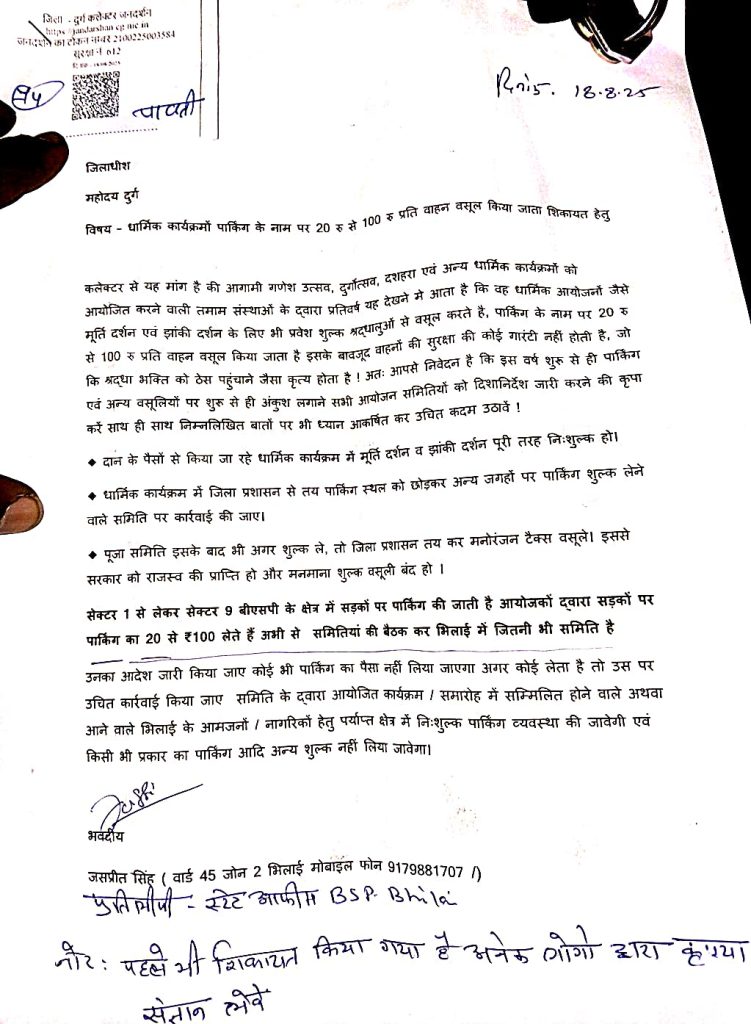 जिला - दुर्ग कलेक्टर जनदर्शन
https://jandarshan.cg.nic.in
जनदर्शन का टोकन नम्बर 2100225003584
सुरक्षा नं 612
पावती
18.8.25
जिलाधीश
महोदय दुर्ग
विषय - धार्मिक कार्यक्रमों पार्किंग के नाम पर 20 रु से 100 रु प्रति वाहन वसूल किया जाता शिकायत हेतु
कलेक्टर से यह मांग है की आगामी गणेश उत्सव, दुर्गोत्सव, दशहरा एवं अन्य धार्मिक कार्यक्रमों को
आयोजित करने वाली तमाम संस्थाओं के द्वारा प्रतिवर्ष यह देखने मे आता है कि वह धार्मिक आयोजनों जैसे
मूर्ति दर्शन एवं झांकी दर्शन के लिए भी प्रवेश शुल्क श्रद्धालुओं से वसूल करते है, पार्किंग के नाम पर 20 रु
से 100 रु प्रति वाहन वसूल किया जाता है इसके बावजूद वाहनों की सुरक्षा की कोई गारंटी नहीं होती है, जो
कि श्रद्धा भक्ति को ठेस पहुंचाने जैसा कृत्य होता है ! अतः आपसे निवेदन है कि इस वर्ष शुरू से ही पार्किंग
एवं अन्य वसूलियों पर शुरू से ही अंकुश लगाने सभी आयोजन समितियों को दिशानिर्देश जारी करने की कृपा
करें साथ ही साथ निम्नलिखित बातों पर भी ध्यान आकर्षित कर उचित कदम उठावें !
◆ दान के पैसों से किया जा रहे धार्मिक कार्यक्रम में मूर्ति दर्शन व झांकी दर्शन पूरी तरह निःशुल्क हो।
◆ धार्मिक कार्यक्रम में जिला प्रशासन से तय पार्किंग स्थल को छोड़कर अन्य जगहों पर पार्किंग शुल्क लेने
वाले समिति पर कार्रवाई की जाए।
◆ पूजा समिति इसके बाद भी अगर शुल्क ले, तो जिला प्रशासन तय कर मनोरंजन टैक्स वसूले। इससे
सरकार को राजस्व की प्राप्ति हो और मनमाना शुल्क वसूली बंद हो ।
सेक्टर 1 से लेकर सेक्टर 9 बीएसपी के क्षेत्र में सड़कों पर पार्किंग की जाती है आयोजकों द्वारा सड़कों पर
पार्किंग का 20 से ₹100 लेते हैं अभी से समितियां की बैठक कर भिलाई में जितनी भी समिति है
उनका आदेश जारी किया जाए कोई भी पार्किंग का पैसा नहीं लिया जाएगा अगर कोई लेता है तो उस पर
उचित कार्रवाई किया जाए समिति के द्वारा आयोजित कार्यक्रम / समारोह में सम्मिलित होने वाले अथवा
आने वाले भिलाई के आमजनों / नागरिकों हेतु पर्याप्त क्षेत्र में निःशुल्क पार्किंग व्यवस्था की जावेगी एवं
किसी भी प्रकार का पार्किंग आदि अन्य शुल्क नहीं लिया जावेगा।
भवदीय
जसप्रीत सिंह ( वार्ड 45 जोन 2 भिलाई मोबाइल फोन 9179881707 /)
प्रतिलीपी - स्टेट आफीस BSP. Bhilai
नोट : पहले भी शिकायत किया गया है अनेक लोगो द्वारा कृप्या
संज्ञान लेवे